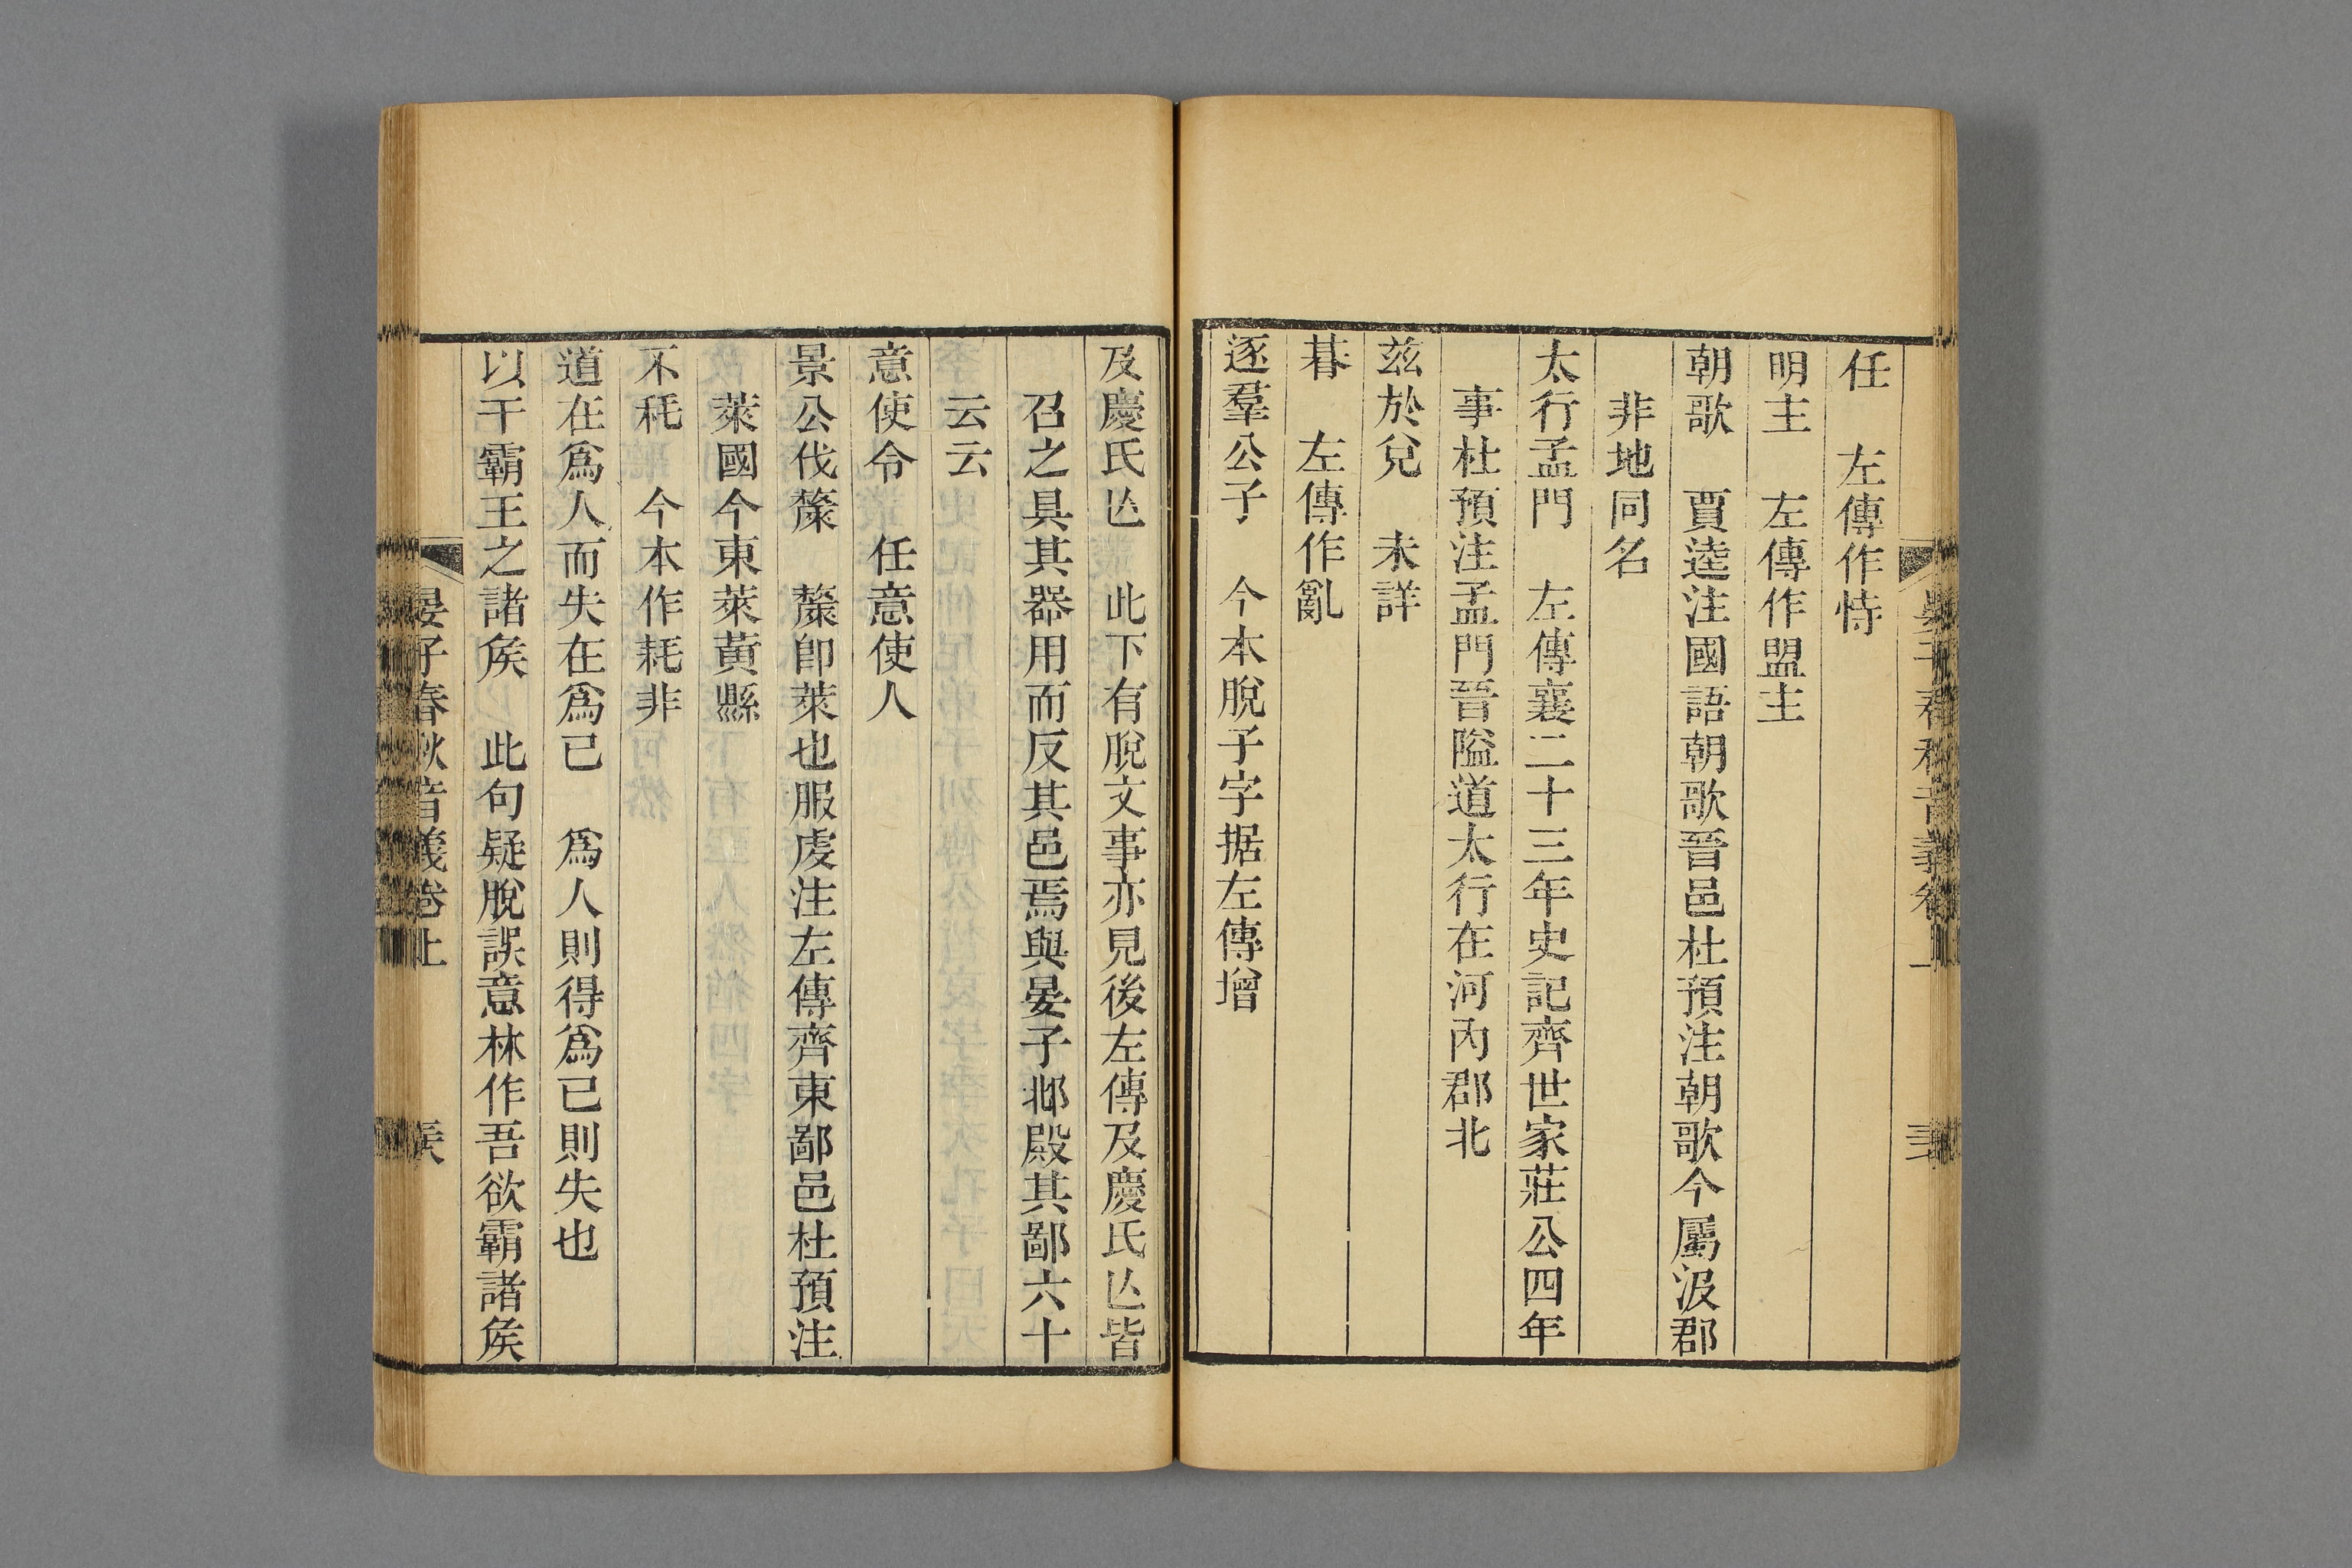 任　左傳作恃
明主　左傳作盟主
朝歌　賈逵注國語朝歌晉邑杜預注朝歌今屬汲郡
非地同名
太行孟門　左傳襄二十三年史記齊世家莊公四年
事杜預注孟門晉隘道太行在河內郡北
茲於兌　未詳
朞　左傳作亂
逐羣公子　今本脫子字据左傳增
及慶氏亾　此下有脫文事亦見後左傳及慶氏亾皆
召之具其器用而反其邑焉與晏子邶殿其鄙六十
云云
意使令　任意使人
景公伐斄　斄卽萊也服虔注左傳齊東鄙邑杜預注
萊國今東萊黃縣
不秏　今本作耗非
道在爲人而失在爲己　爲人則得爲己則失也
以干霸王之諸矦　此句疑脫誤意林作吾欲霸諸矦
晏子春秋音義卷上